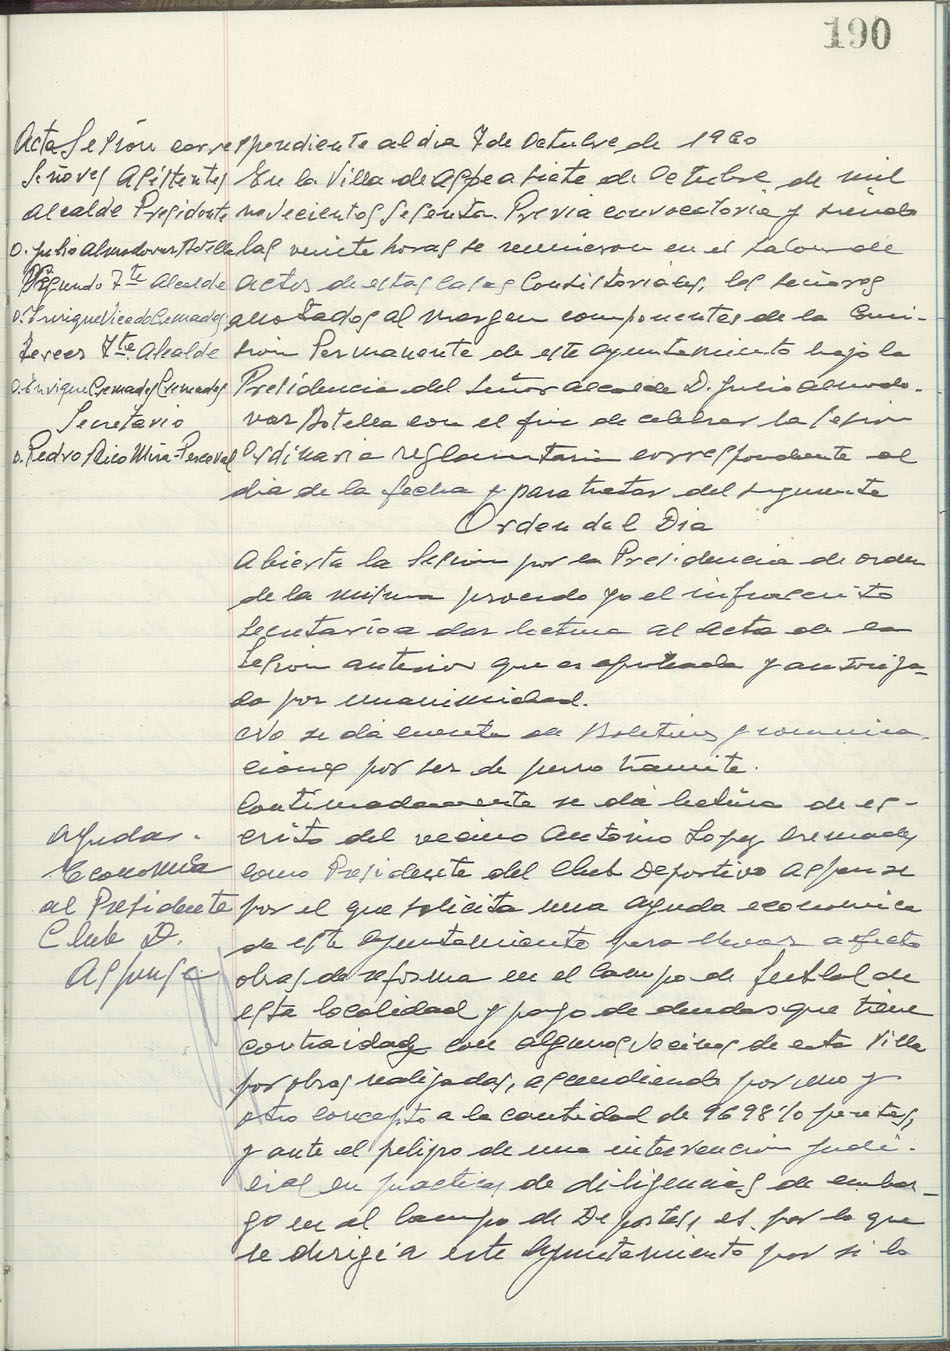 190
Acta Sesión correspondiente al dia 7 de Octubre de 1960
Señores Asistentes
Alcalde Presidente
D. Julio Almodovar Botella
Segundo Tte Alcalde
D. Enrique Vicedo Cremades
Tercer Tte Alcalde
D. Enrique Cremades Cremades
Secretario
D. Pedro Rico Mira-Perceval
En la Villa de Aspe a siete de Octubre de mil
novecientos sesenta. Previa convocatoria y siendo
las veinte horas se reunieron en el salon de
actos de estas Casas Consistoriales, los señores
anotados al margen componentes de la Comi-
sion Permanente de este Ayuntamiento bajo la
Presidencia del Señor Alcalde D. Julio Almodo-
var Botella con el fin de celebrar la sesion
Ordinaria reglamentaria correspondiente al
dia de la fecha y para tratar del siguiente
Orden del Dia
Abierta la Sesion por la Presidencia de orden
de la misma procedo yo el infrascrito
Secretario a dar lectura al acta de la
Sesion anterior que es aprobada y autoriza-
da por unanimidad.
No se dá cuenta de Boletines y comunica-
ciones por ser de puro tramite.
Continuadamente se dá lectura de es-
crito del vecino Antonio Lopez Cremades
como Presidente del Club Deportivo Aspense
por el que solicita una ayuda economica
de este Ayuntamiento para llevar a efecto
obras de reforma en el Campo de futbol de
esta localidad y pago de deudas que tiene
contraidas con algunos vecinos de esta Villa
por obras realizadas, ascendiendo por uno y
otro concepto a la cantidad de pesetas,
y ante el peligro de una intervencion judi-
cial en practicas de diligencias de embar-
go en el Campo de Deportes, es por lo que
se dirige a este Ayuntamiento por si lo
Ayudas
Economia
al Presidente
Club D.
Aspense